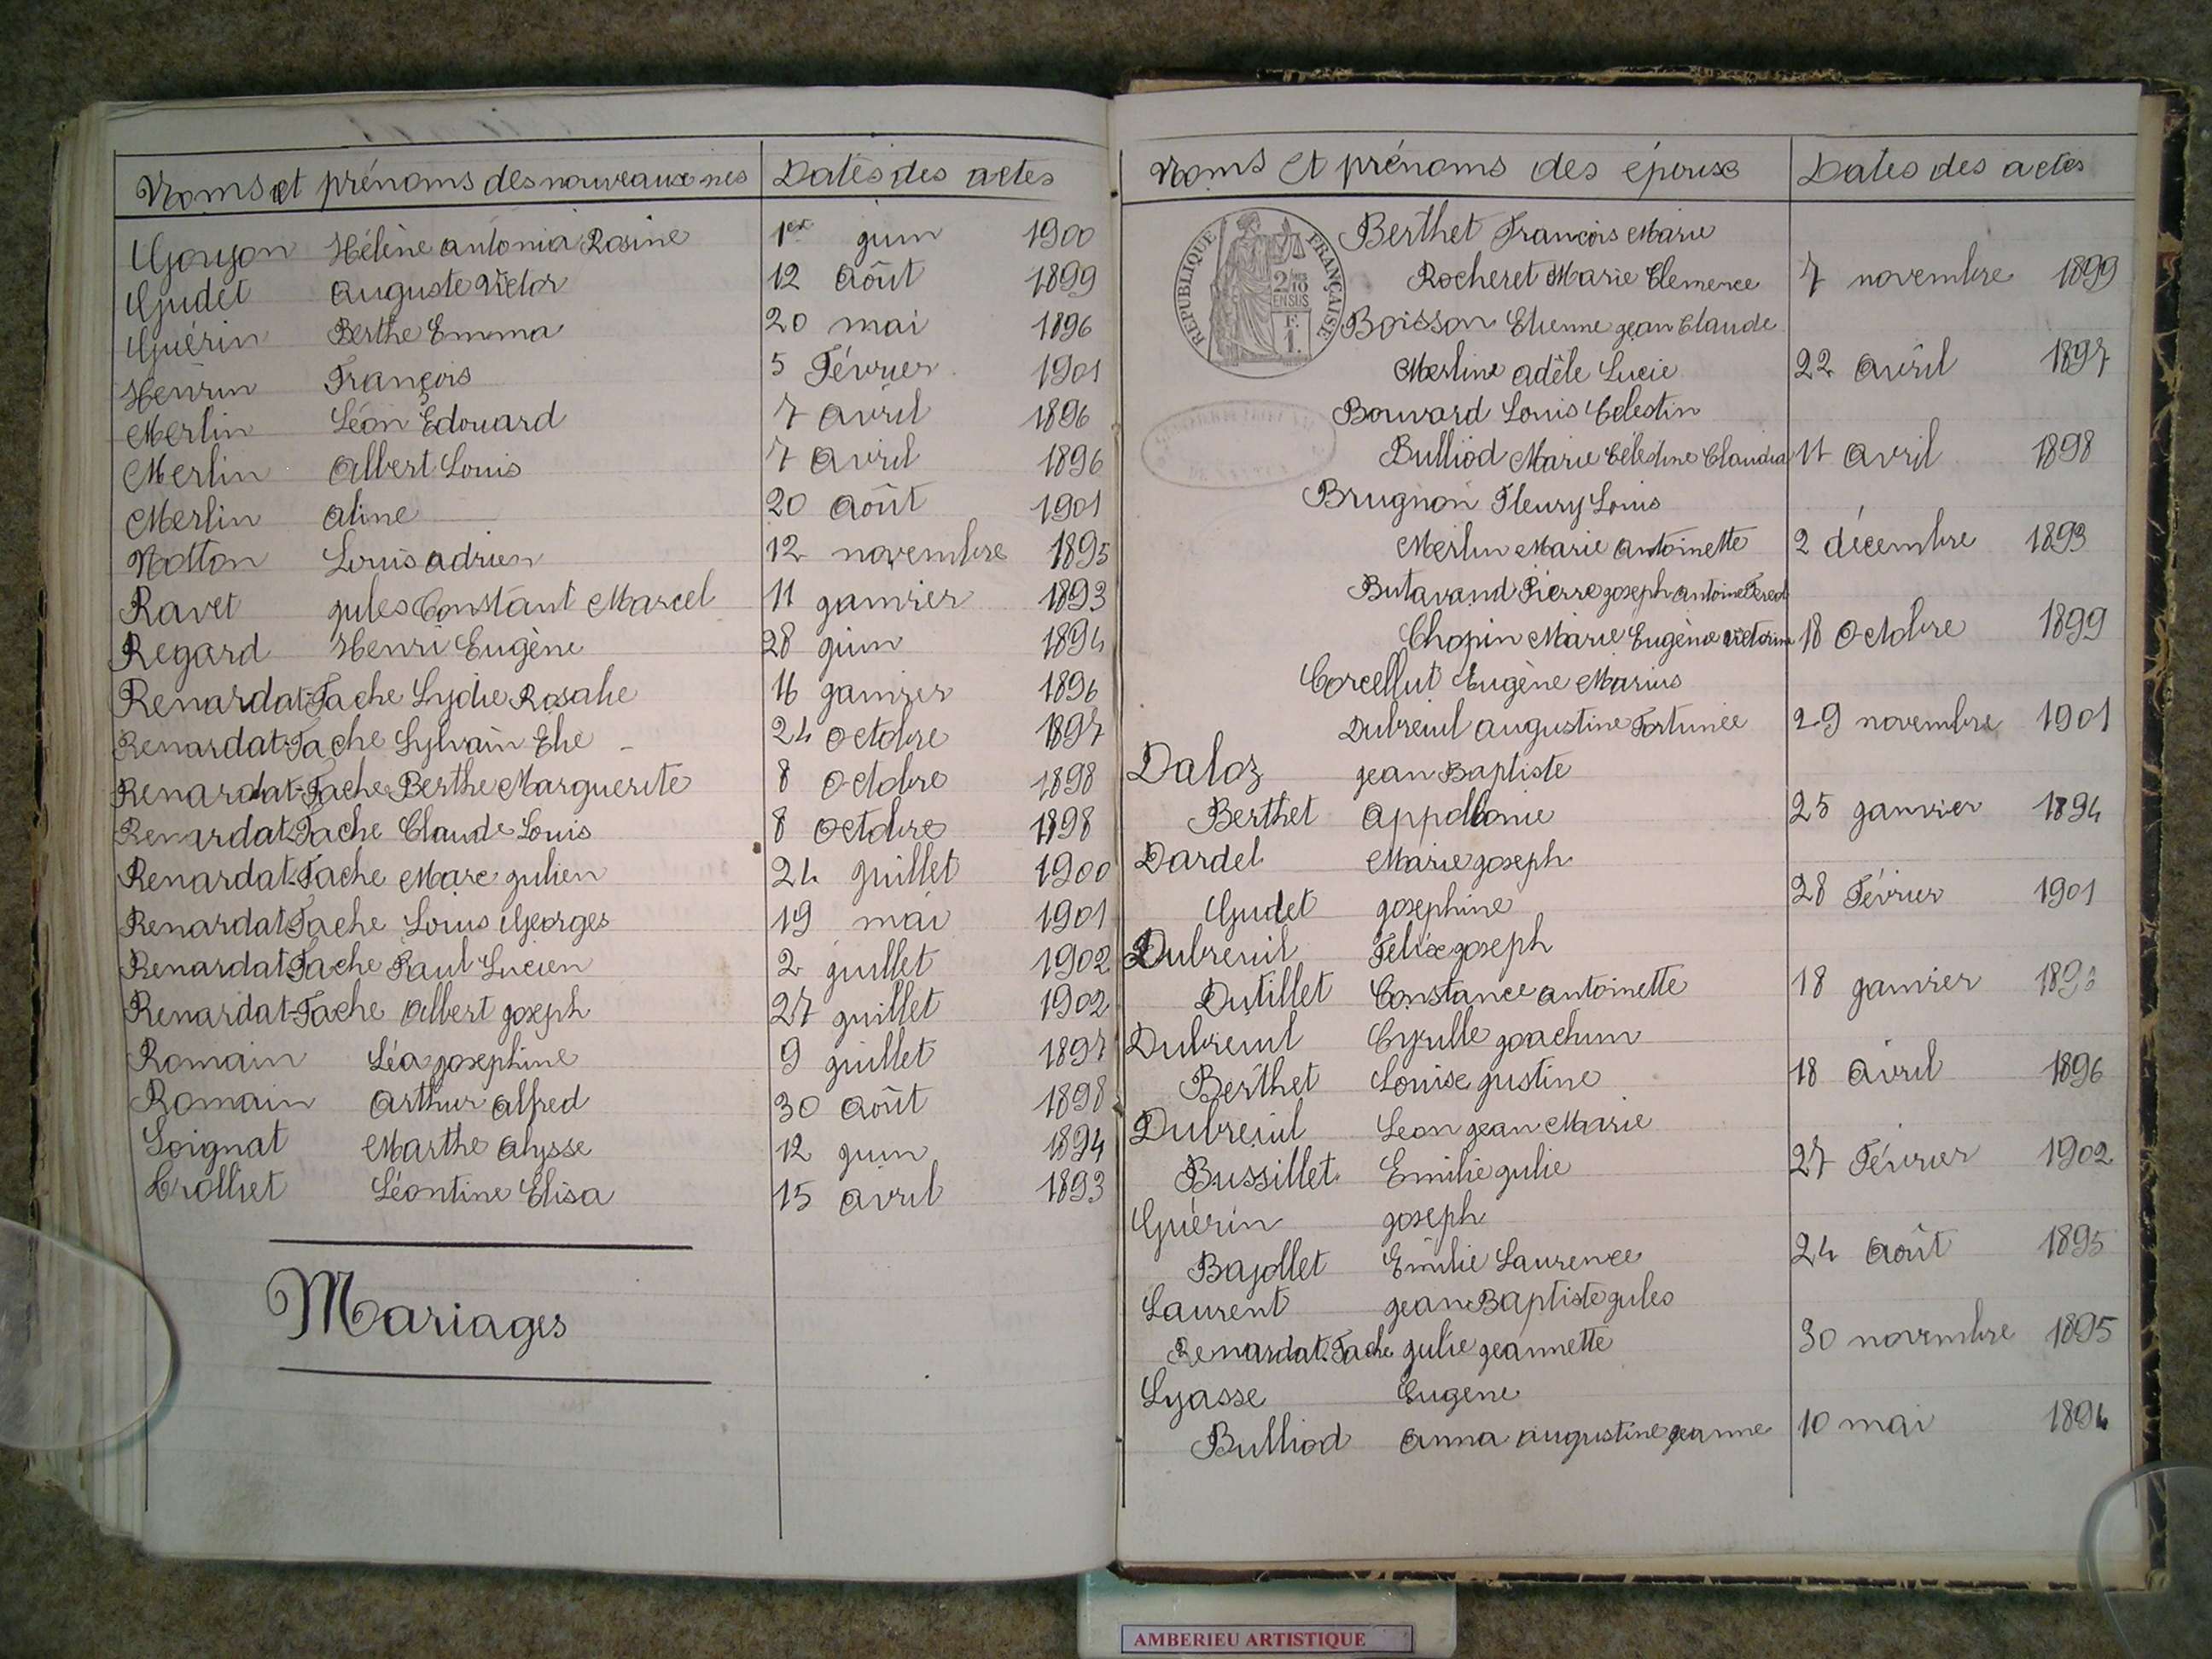 Noms et prénoms des nouveaux nés Dates des actes
Goyon Hélène Antonia Rosine 1er juin 1900
Gudet Auguste Victor 12 Août 1899
Guérin Berthe Emma 20 mai 1896
Henrin François 5 Février 1901
Merlin Léon Edouard 7 avril 1896
Merlin Albert Louis 7 avril 1896
Merlin Aline 20 Août 1901
Notton Louis Adrien 12 novembre 1895
Ravet Jules Constant Marcel 11 janvier 1893
Regard Henri Eugène 28 juin 1894
Renardat-Fache Lydie Rosalie 16 janvier 1896
Renardat-Fache Sylvain Elie 24 octobre 1897
Renardat-Fache Berthe Marguerite 8 Octobre 1898
Renardat-Fache Claude Louis 8 octobre 1898
Renardat-Fache Marc Julien 24 juillet 1900
Renardat-Fache Louis Georges 19 mai 1901
Renardat-Fache Paul Lucien 2 juillet 1902
Renardat-Fache Albert Joseph 27 juillet 1902
Romain Léa Josephine 9 juillet 1897
Romain Arthur Alfred 30 Août 1898
Soignat Marthe Alysse 12 juin 1894
Trolliet Léontine Elisa 15 avril 1893
Mariages
Noms et prénoms des époux Dates des actes
RÉPUBLIQUE FRANÇAISE
2/10
EN SUS
F.
1.
Berthet François Marie
Rocheret Marie Clemence 7 novembre 1899
Boisson Etienne Jean Claude
Merline Adèle Lucie 22 avril 1897
Bouvard Louis Célestin
Bulliod Marie Célestine Claudia 11 avril 1898
Brugnon Fleury Louis
Merlin Marie Antoinette 2 décembre 1893
Butavand Pierre Joseph Antoine
Chopin Marie Eugène Victorine 18 Octobre 1899
Corcellut Eugène Marius
Dubreuil Augustine Fortunée 29 novembre 1901
Daloz Jean Baptiste
Berthet Appollonie 25 janvier 1894
Dardel Marie Joseph
Gudet Josephine 28 Février 1901
Dubreuil Felix Joseph
Dutillet Constance Antoinette 18 janvier 1893
Dubreuil Cyrille Joachim
Berthet Louise Justine 18 avril 1896
Dubreuil Leon Jean Marie
Bussillet Emilie Julie 27 Février 1902
Guérin Joseph
Bajollet Emilie Laurence 24 Août 1895
Laurent Jean Baptiste Jules
Renardat-Fache Julie Jeannette 30 novembre 1895
Lyasse Eugene
Bulliod Anna Augustine Jeanne 10 mai 1894
AMBERIEU ARTISTIQUE